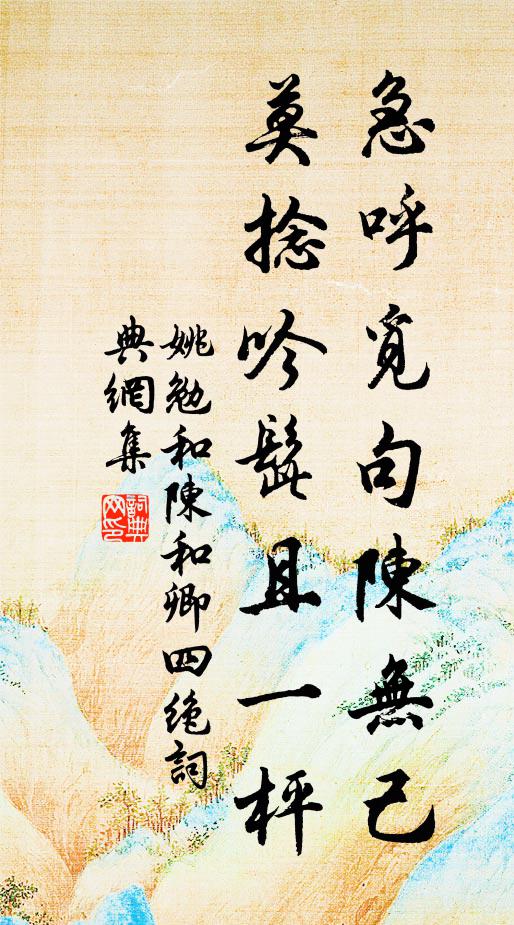 急呼覓句陳無己
莫捻吟髭且一枰
姚勉和陳和卿四絶詞
典網集
詞典網印